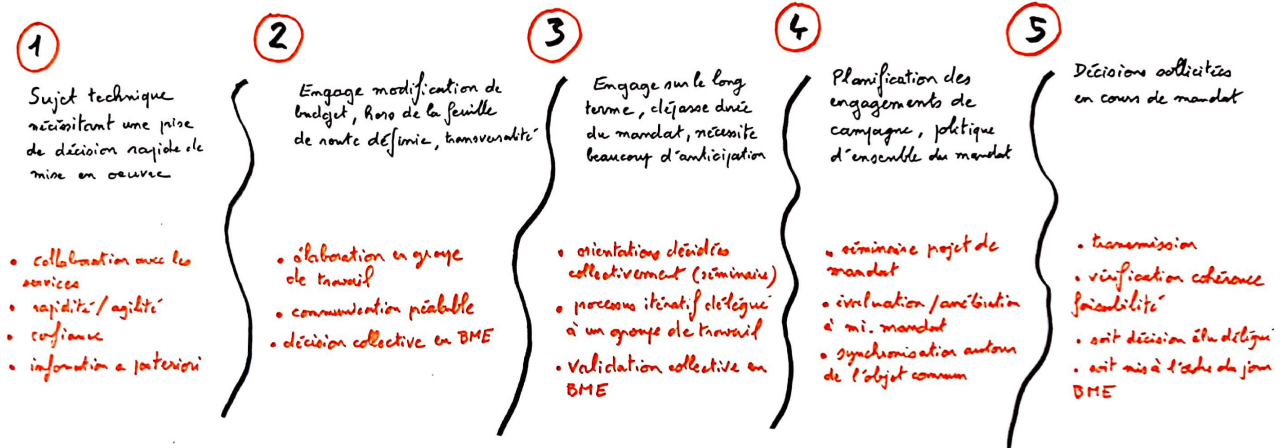 1
Sujet technique
nécessitant une prise
de décision rapide de
mise en oeuvre
• collaboration avec les
services
• rapidité/agilité
• confiance
• information a posteriori
2
Engage modification de
budget, hors de la feuille
de route définie, transversalité
• élaboration en groupe
de travail
• communication préalable
• décision collective en BME
3
Engage sur le long
terme, dépasse durée
du mandat, nécessite
beaucoup d'anticipation
• orientations décidées
collectivement (séminaire)
• processus itératif délégué
à un groupe de travail
• validation collective en
BME
4
Planification des
engagements de
campagne, politique
d'ensemble du mandat
• séminaire projet de
mandat
• évaluation/
à mi-mandat
• synchronisation autour
de l'objet commun
5
Décisions sollicitées
en cours de mandat
• transmission
• vérification cohérence
faisabilité
• soit décision élu délégué
• soit mis à l'ordre du jour
BME